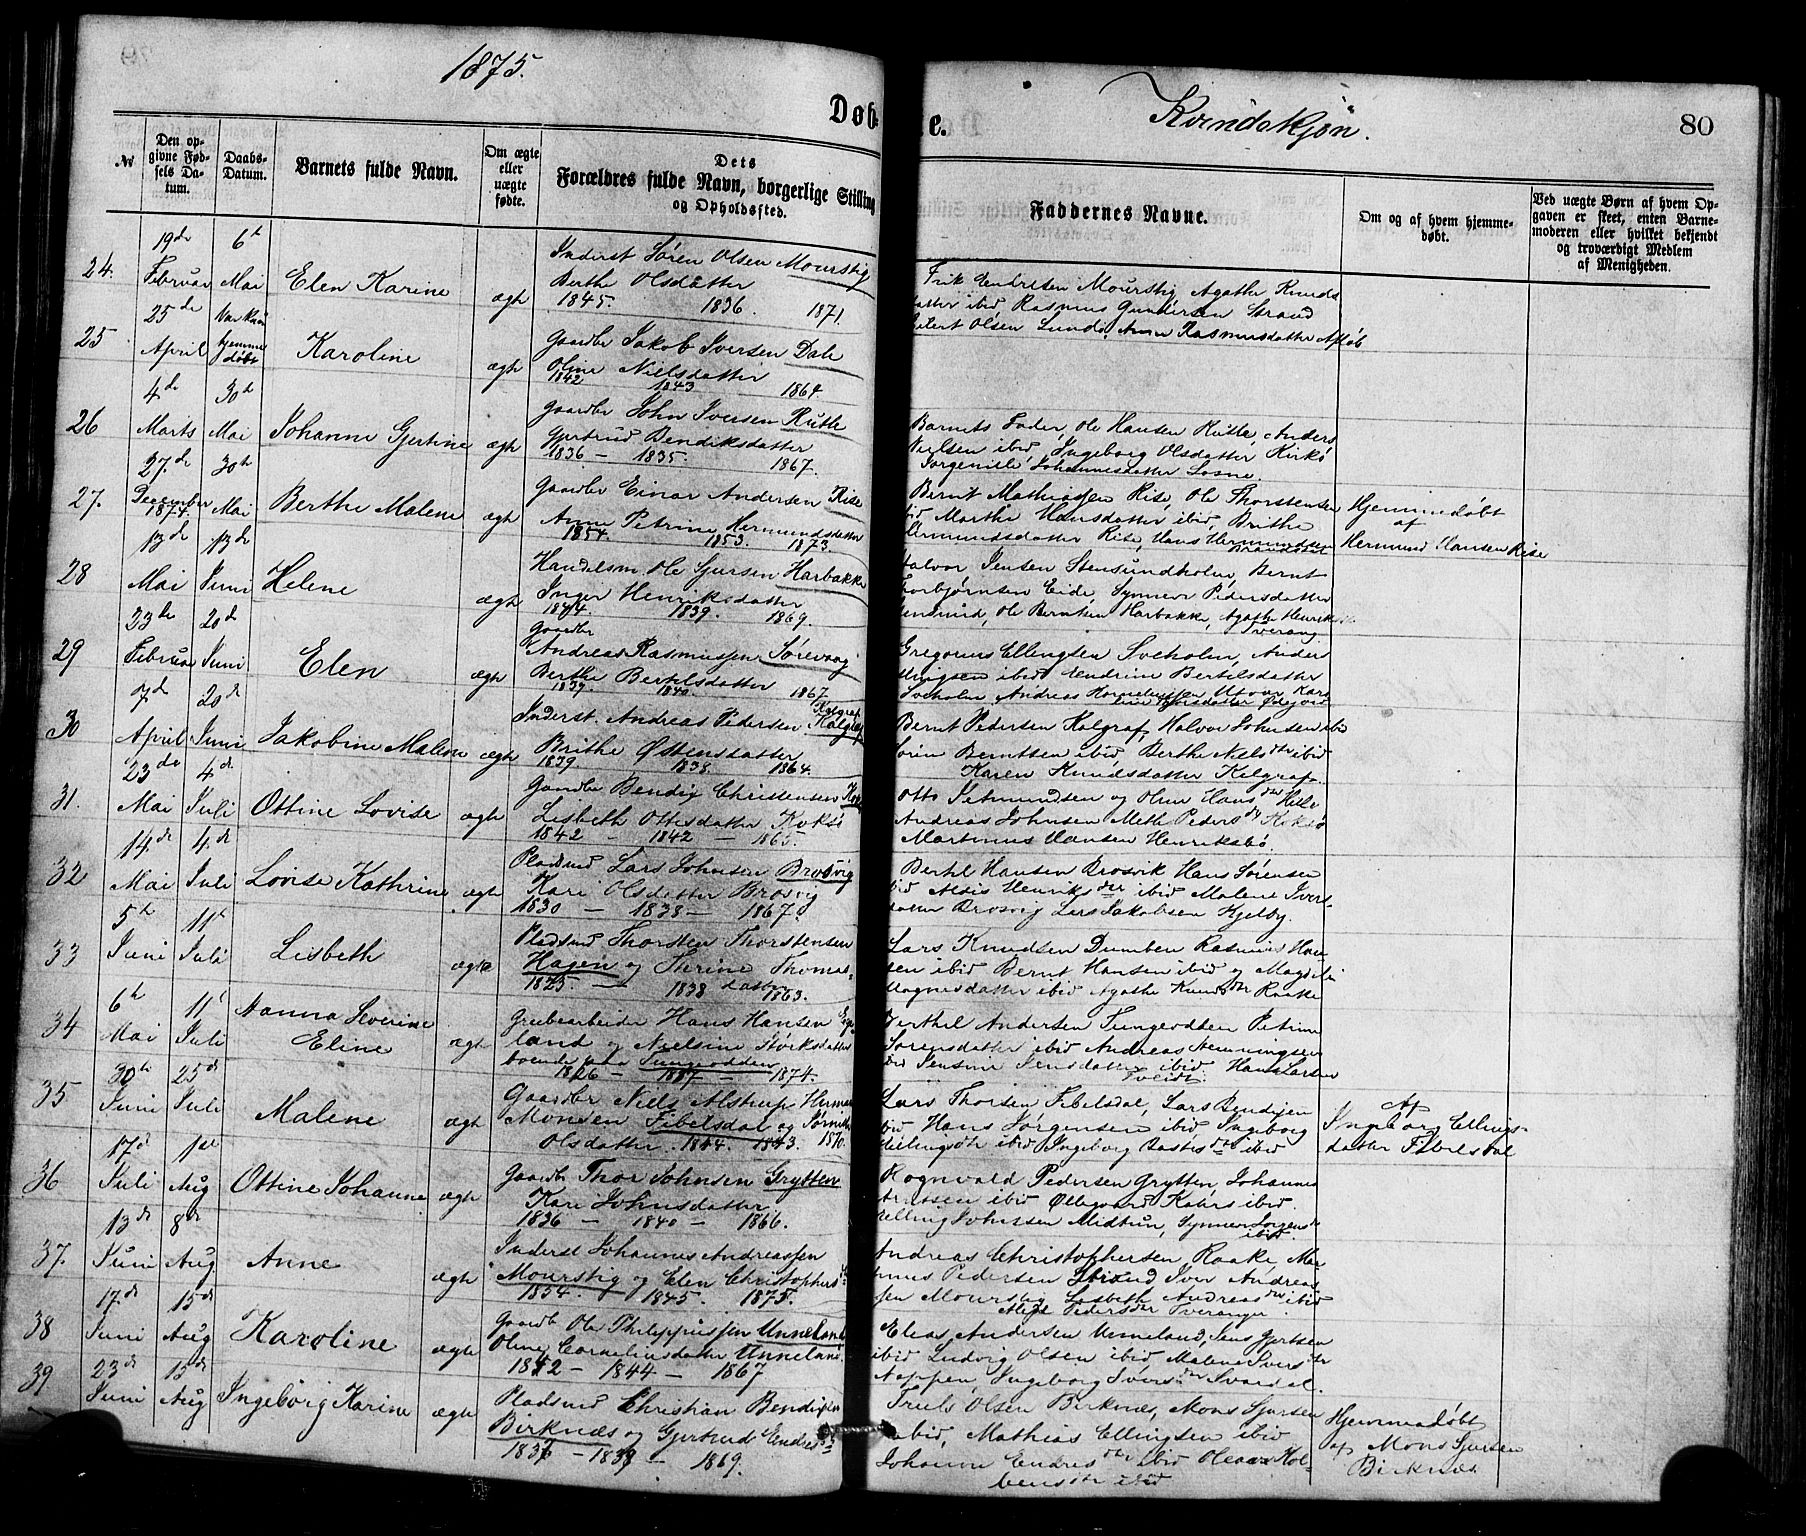 1875.
Døbte.
Kvindekjøn.
80
№
Den opgivne Fødsels Datum.
Daabs-Datum.
Barnets fulde Navn.
Om ægte eller uægte fødte.
Dets Forældres fulde Navn, borgerlige Stilling og Opholdssted.
Faddernes Navne.
Om og af hvem hjemmedøbt.
Ved uægte Børn af hvem Opgaven er skeet, enten Barnemoderen eller hvilket bekjendt og troværdigt Medlem af Menigheden.
24.
19de Februar
6te Mai
Elen Karine
ægte
Inderst Søren Olsen Mourstig
Berthe Olsdatter
1845. 1836. 1871.
Erik Endresen Mourstig Agathe Knuds
datter ibid, Rasmus Gundersen Strand
Olsen Lunde, Anne Rasmusdatter
25
25de April
Var kun hjemmedøbt
Karoline
ægte
Gaardbr Jakob Iversen Dale
Oline Nielsdatter
1842 1843 1864.
26
4de Marts
30te Mai
Johanne Gjertine
ægte
Gaardbr John Iversen Rutle
Gjertrud Bendiksdatter
1836 – 1835. 1867.
Barnets Fader, Ole Hansen Rutle, Anders
Nielsen ibid, Ingeborg Olsdatter Kirkø
Johannesdatter Losne.
27.
27de December 1874.
30te Mai
Berthe Malene
ægte
Gaardbr Einar Andersen Rise
Anne Petrine Hermundsdatter
1854. 1853. 1873.
Bernt Mathiassen Rise, Ole Thorstensen
ibid Marthe Hansdatter ibid, Brithe
Hermundsdatter Rise, Hans Hermundsen
Hjemmedøbt
af
Hermund Hansen Rise
28
13de Mai
13de Juni
Helene
ægte
Handelsm Ole Sjursen Harbakke
Inger Henriksdatter
1844. 1839. 1869.
Halvor Jensen Stensundholm, Bernt
Torbjørnsen Eide, Synneve Pedersdatter
Ole Berntsen Harbakke, Agathe Henriks
Tverang.
29
23de Februar
20de Juni
Elen
ægte
Gaardbr
Andreas Rasmussen Sørevaag
Berthe Bertelsdatter
1839. 1840. 1867
Gregorius Ellingsen Sveholm, Anders
Ellingsen ibid Endrine Bertelsdatter
Sveholm Andreas Kornelussen Utvær
30
7de April
20de Juni
Jakobine Malene
ægte
Inderst. Andreas Pedersen Kolgraf
Brithe Østensdatter
1839 1838. 1864.
Bernt Pedersen Kolgraf, Halvor Johnsen ibid
Berntsen ibid, Berthe Nielsdtr ibid
Karen Knudsdatter Kolgraf.
31.
23de Mai
4de Juli
Ottine Lovise
ægte
Gaardbr Bendix Christensen
Lisbeth Ottesdatter
1842 – 1842 – 1865
Otto Setmundsen og Oline Hansdtr Hille
Andreas Johnsen Mette Pedersdtr
Martinus Hansen Henriksbø.
32
14de Mai
4de Juli
Lovise Kathrine
ægte
Pladsmd Lars Johnsen Brosvig
Kari Olsdatter Brosvig
1830 – 1838 – 1867.
Bertil Hansen Brosvik Hans Sørensen
ibid Henriksdtr ibid Malene Ivers-
datter Brosvig Lars Jakobsen Kjelby.
33
5te Juni
11te Juli
Lisbeth
ægte
Pladsmd Thorsten Thorstensen
Hagen og Therine Thomas-
datter
1825 – 1838 1863.
Lars Knudsen Dumben Rasmus Han-
sen ibid Bernt Hansen ibid og
Magnesdatter ibid Agathe Knudsdtr Raake
34
6te Mai
11te Juli
Hanna Severine
Eline
ægte
Grubearbeider Hans Hansen
land og Nielsine Størksdatter
boende paa Tungeodden
1826 – 1837 – 1874.
Berthel Andersen Tungeodden Petrine
Sørensdatter ibid Andreas Hemmingsen
ibid Jensine Jensdatter ibid. Hans Larsen
Tveidt.
35
30te Juni
25de Juli
Malene
ægte
Gaardbr Niels Alstrup Herman
Monsen Fibelsdal og
Olsdatter. 1844 1843. 1870.
Lars Thorsen Fibelsdal, Lars Bendixen
ibid Hans Jørgensen ibid Ingeborg
Ellingsdtr ibid Ingeborg ibid
Af
Ingeborg Ellings-
datter Fibelsdal
36
17de Juli
1ste Aug
Ottine Johanne
ægte
Gaardbr Thor Johnsen Grytten
Kari Johnsdatter
1836 – 1840 – 1866.
Rognvald Pedersen Grytten Johannes
ibid Øllegaard ibid.
Elling Johnsen Midtun, Synneve Jørgensdtr
ibid.
37.
13de Juni
8de Aug
Anne
ægte
Inderst Johannes Andreassen
Mourstig og Elen Christophersdtr
1854. 1845. 1875.
Andreas Christophersen Raake,
Pedersen Strand Iver Andreas-
sen Mourstig Lisbeth Andreasdtr ibid
Pedersdtr Tveranger
38
17de Juni
15de Aug
Karoline
ægte
Gaardb Ole Philippussen Unneland
Oline Corneliusdatter Unneland.
1842 – 1844 – 1867
Elias Andersen Unneland, Jens Gjertsen
ibid Ludvig Olsen ibid, Malene Iversdtr
Noppen, Ingeborg Iversdtr Svardal.
39
23de Juni
15de Aug
Ingeborg Karine
ægte
Pladsmd Christian Bendixsen
Birknæs og Gjertrud Endresdtr
1837 – 1839 – 1869.
Truls Olsen Birknæs, Mons Sjursen
ibid, Mathias Ellingsen ibid
Johanne Endresdtr ibid Oleane Kol-
bensdtr ibid
Hjemmedøbt
af Mons Sjursen
Birknæs